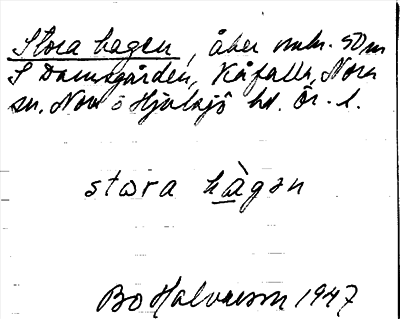 Stora hagen, åker omkr. 50 m
S Dammgården, Kåfalla, Nora
sn. Nora o Hjulsjö hd. Ör. l.
stora hàgən
Bo Halvarson 1947